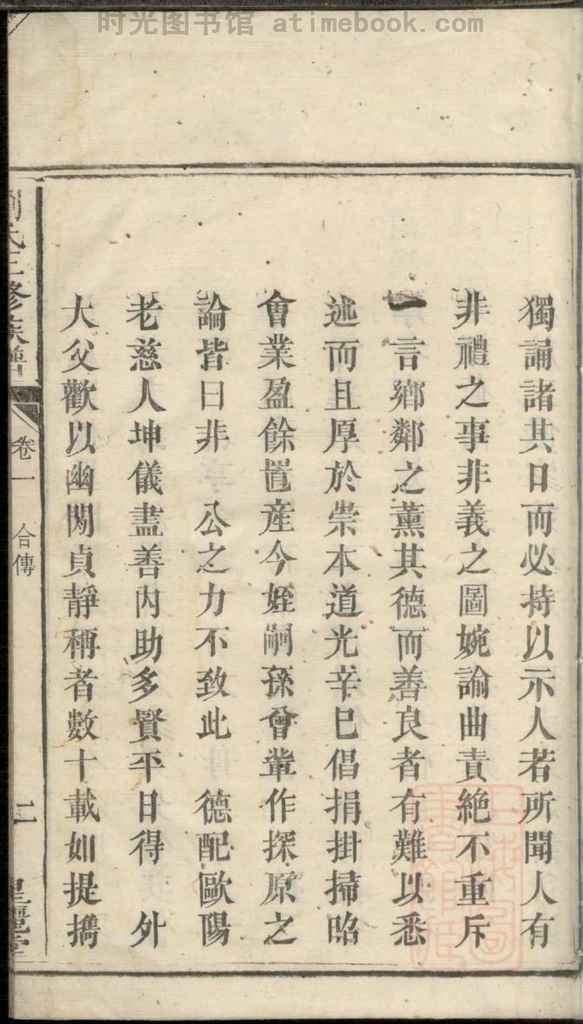 时光图书馆 atimebook.com
獨誦諸其口而必持以示人若所聞人有
非禮之事非義之圖婉諭曲責絶不重斥
一言鄉鄰之薫其德而善良者有難以悉
述而且厚於崇本道光辛巳倡捐掛掃昭
會業盈餘置産今姪嗣孫曾輩作探原之
論皆曰非 公之力不致此 德配歐陽
老慈人坤儀盡善内助多賢平日得 外
大父歡以幽閑貞靜稱者數十載如提攜
劉氏三修族譜
卷一 合傳
二